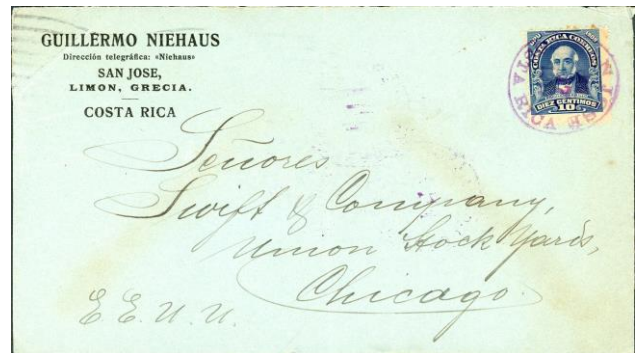 GUILLERMO NIEHAUS
Dirección telegráfica: «Niehaus»
SAN JOSE,
LIMON, GRECIA.
COSTA RICA
COSTA RICA CORREOS
DIEZ CENTIMOS
10
SAN JOSE
COSTA RICA
Señores
Swift & Company,
Union Stock Yards,
Chicago.
E E. U. U.